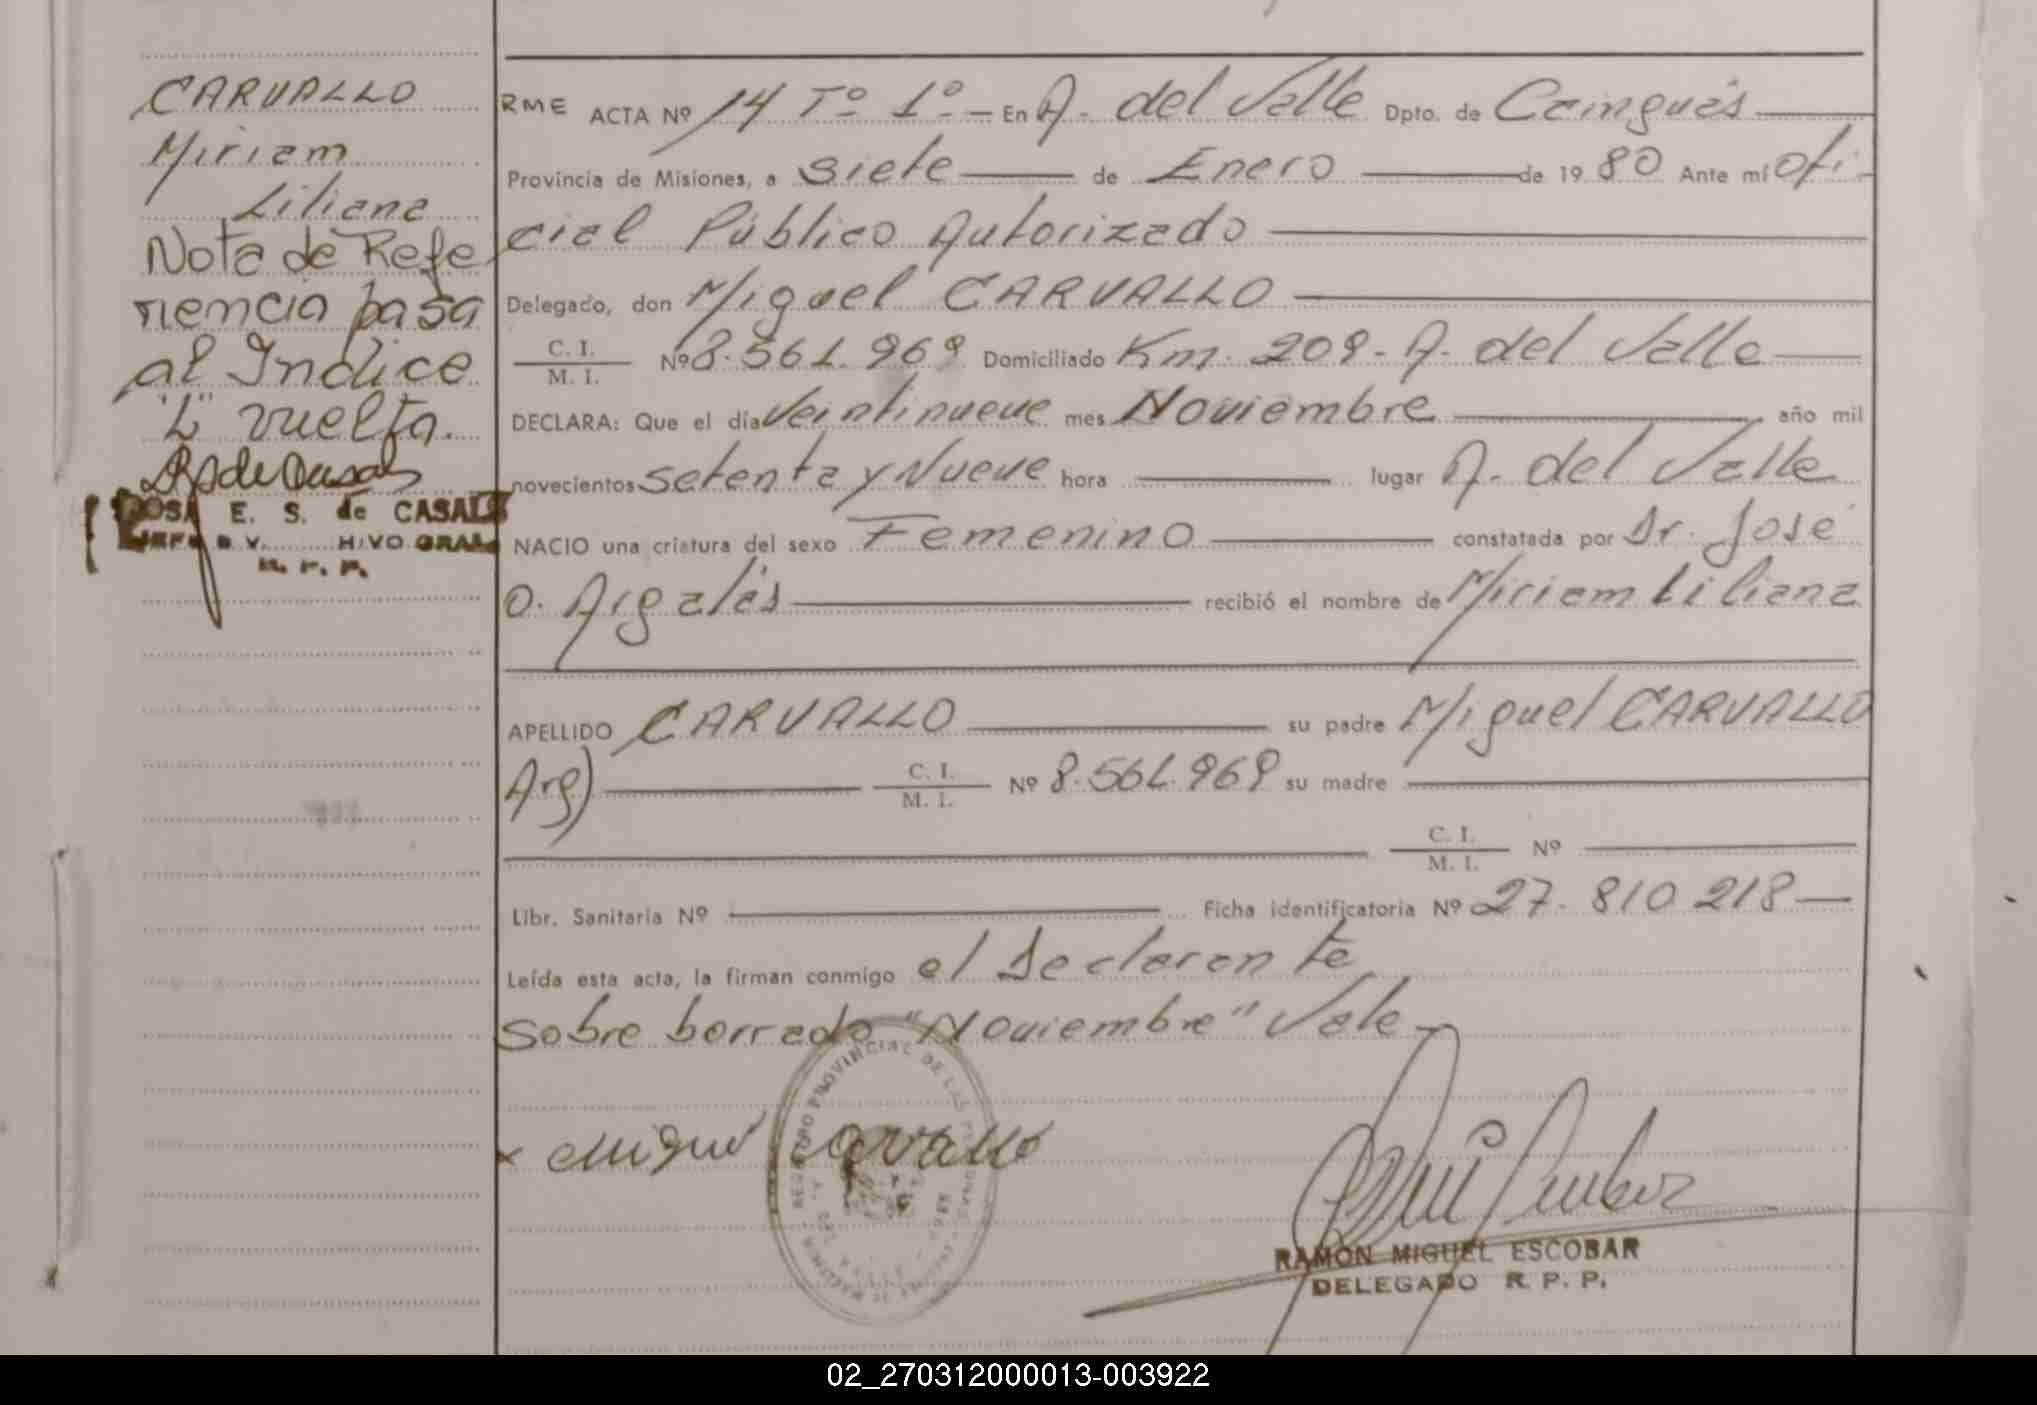 CARVALLO
Miriam
Liliana
Nota de Refe
rencia pasa
al Indice
"L" vuelta.
ROSA E. S. de CASALS
R. P. P.
RME ACTA Nº 14 Tº 1º.- En A. del Valle Dpto. de Cainguás
Provincia de Misiones, a siete de Enero de 1980 Ante mí ofi-
cial Público Autorizado
Delegado, don Miguel CARVALLO
C. I.
M. I. Nº 8.561.969 Domiciliado Km. 209- A. del Valle
DECLARA: Que el día Veintinueve mes Noviembre año mil
novecientos setenta y Nueve hora lugar A. del Valle
NACIO una criatura del sexo Femenino constatada por Dr. José
O. Argalás recibió el nombre de Miriam Liliana
APELLIDO CARVALLO su padre Miguel CARVALLO
Arg) C. I.
M. I. Nº 8.561.969 su madre
C. I.
M. I. Nº
Libr. Sanitaria Nº Ficha identificatoria Nº 27.810.218
Leída esta acta, la firman conmigo el Declarante
Sobre borrado "Noviembre" Vale
x Miguel Carvallo
REGISTRO PROVINCIAL DE LAS PERSONAS
RAMON MIGUEL ESCOBAR
DELEGADO R. P. P.
02_270312000013-003922